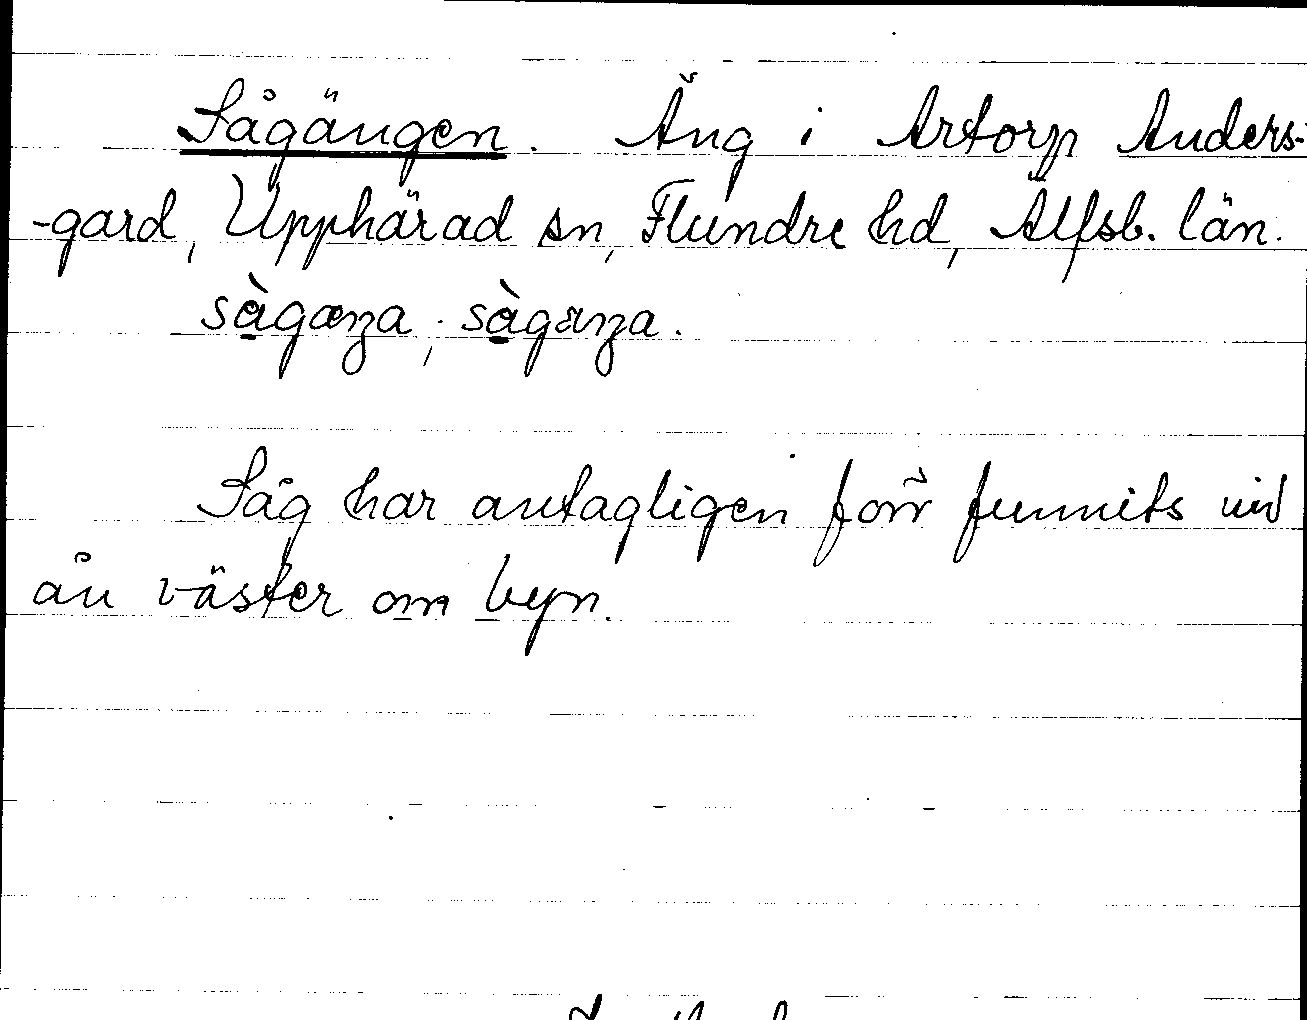 Sågängen. Äng i Artorp Anders-
-gard, Upphärad sn, Flundre hd, Älfsb. län.
sàgæŋa; sàgäŋa.
Såg har antagligen förr funnits vid
ån väster om byn.